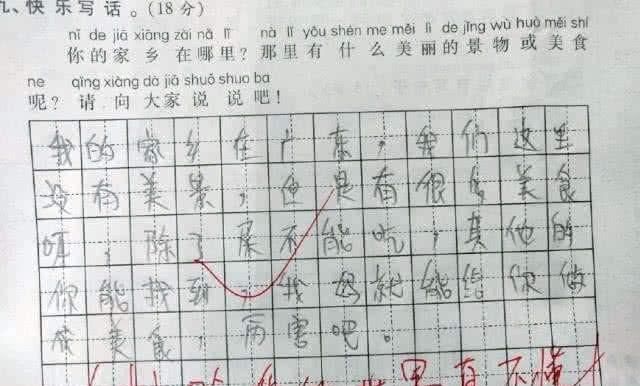 九、快乐写话。(18分)
nǐ de jiā xiāng zài nǎ lǐ nà lǐ yǒu shén me měi lì de jǐng wù huò měi shí
你的家乡在哪里?那里有什么美丽的景物或美食
ne qǐng xiàng dà jiā shuō shuo ba
呢?请向大家说说吧!
我的家乡在广东,我们这里
没有美景,但是有很多美食
哦,除了屎不能吃,其他的
你能找到,我妈就能给你做
成美食,厉害吧。